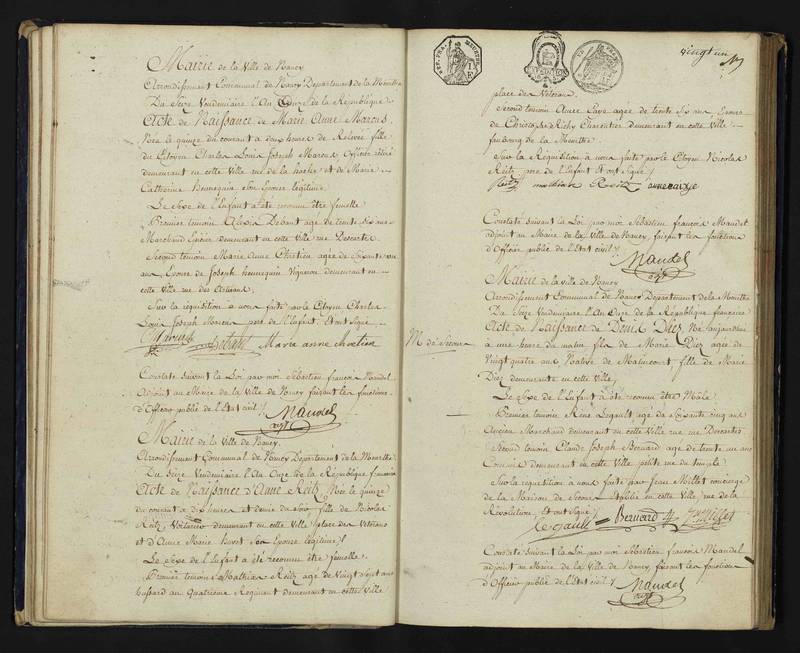 Mairie de la Ville de Nancy
Arrondissement Communal de Nancy Département de la Meurthe
Du Seize Vendemiaire l'An Onze de la République
Acte de Naissance de Marie Anne Marcus
Née le quinze du courant a deux heures de Relevée fille
du Citoyen Charles Louis Joseph Marcus Officier retiré
demeurant en cette Ville rue de la et de Marie
Catherine Hennequin son Epouse légitime
Le Sexe de l'Enfant a été reconnu être femelle
Premier temoin Alexis Debant agé de trente six ans
Marchand Epicier demeurant en cette Ville rue Descartes
Second temoin Marie Anne Chrétien agée de Soixante
ans Epouse de Joseph Hennequin Vigneron demeurant en
cette Ville rue des Artisans,
Sur la réquisition a nous faite par le Citoyen Charles
Louis Joseph Marcus pere de l'Enfant et ont Signé
CMarcus Debant Marie anne chretien
Constaté suivant la Loi par moi Sébastien françois Mandel
adjoint au Maire de la Ville de Nancy faisant les fonctions
d'Officier public de l'Etat civil
Mandel
adjt
Mairie de la Ville de Nancy
Arrondissement Communal de Nancy Département de la Meurthe
Du Seize Vendemiaire l'An Onze de la République française
Acte de Naissance d'Anne Reitz Née le quinze
du courant a dix heures et demie du soir fille de Nicolas
Reitz, Voiturier demeurant en cette Ville place des Vétérans
et d'Anne Marie son Epouse légitime
Le Sexe de l'Enfant a été reconnu être femelle
Premier temoin Mathias Reitz agé de Vingt Sept ans
hussard au Quatrieme Regiment demeurant en cette Ville
Vingt un
place des Vétérans
Second temoin Anne agée de trente Six ans Epouse
de Christophe Richy Charpentier demeurant en cette Ville
faubourg de la Meurthe
Sur la Réquisition a nous faite par le Citoyen Nicolas
Reitz pere de l'Enfant et ont Signé
Reitz Reitz
Constaté suivant la Loi par moi Sébastien françois Mandel
adjoint au Maire de la Ville de Nancy, faisant les fonctions
d'Officier public de l'Etat civil
Mandel
adjt
Mairie de la Ville de Nancy
Arrondissement Communal de Nancy Département de la Meurthe
Du Seize Vendemiaire l'An Onze de la République française
M. de Secours
Acte de Naissance de Denis Diez, Né aujourd'hui
a une heure du matin fils de Marie Diez agée de
Vingt quatre ans Native de Malincourt, fille de Marie
Diez demeurante en cette Ville,
Le Sexe de l'Enfant a été reconnu être Mâle
Premier temoin René Legault agé de Soixante cinq ans
Ancien Marchand demeurant en cette Ville rue Descartes
Second temoin Claude Joseph Bernard agé de trente un ans
Commis demeurant en cette Ville petite rue du temple
Sur la requisition à nous faite par Jean Millet concierge
de la Maison de Secours établie en cette Ville rue de la
Révolution, Et ont Signé
Legault Bernard Jn Millet
Constaté suivant la Loi par moi Sébastien françois Mandel
adjoint au Maire de la Ville de Nancy, faisant les fonctions
d'Officier public de l'Etat civil
Mandel
adjt